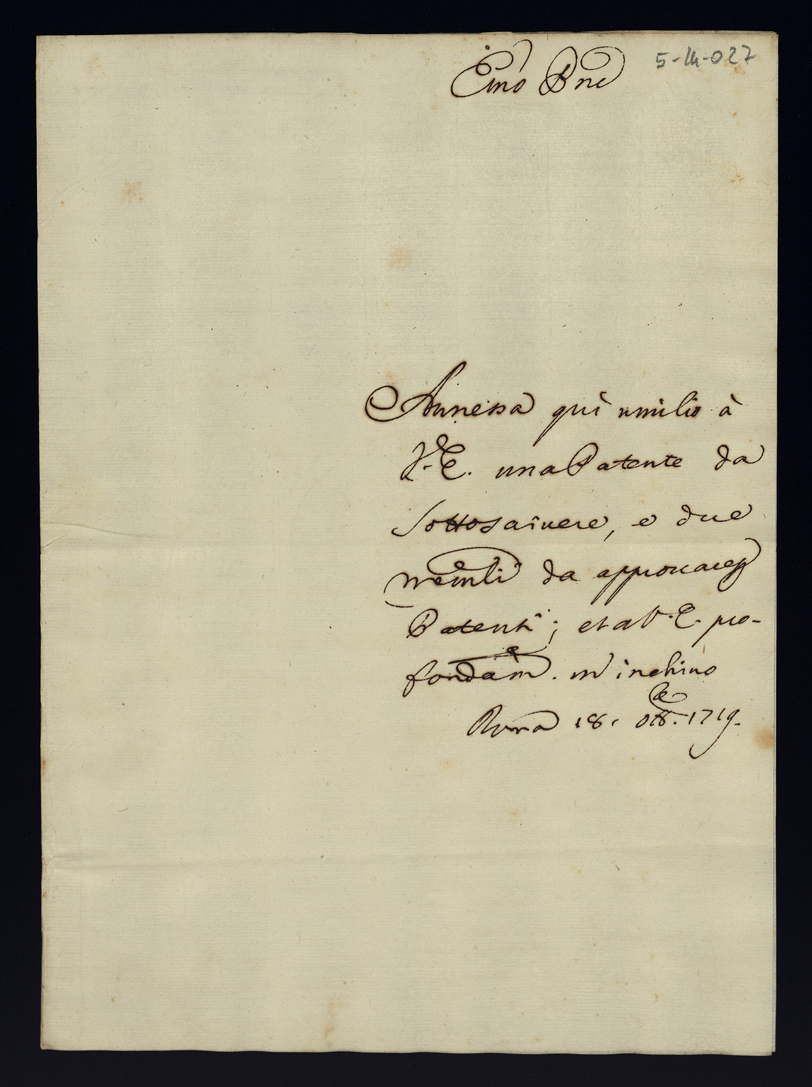 5-14-027
Emo Pne
Annessa quì umilio à
V. E. una Patente da
Sottoscrivere, e due
da approvare
Patenti; et a V. E. pro-
fondam.e m'inchino
Roma 18. Ott.re 1719.